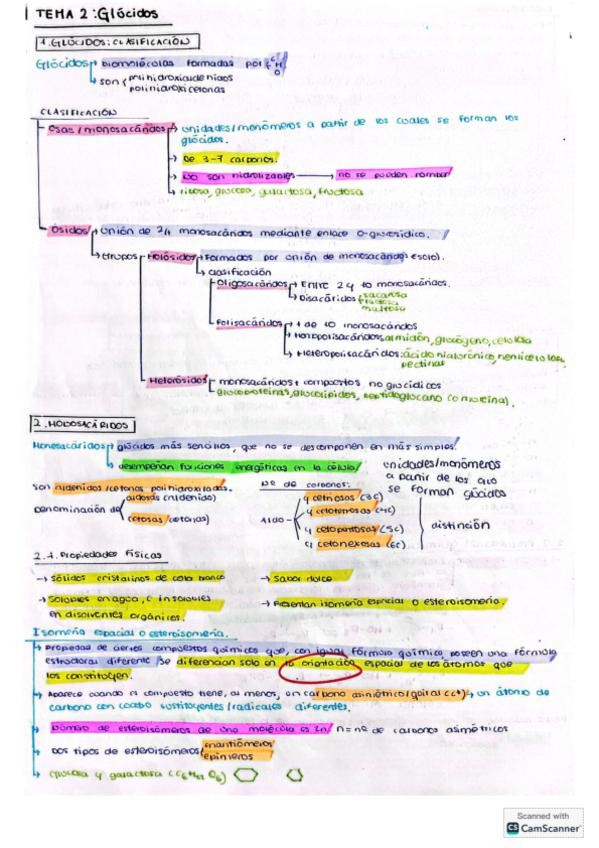 TEMA 2: Glúcidos
1. GLÚCIDOS: CLASIFICACIÓN
Glúcidos biomoléculas formadas por C H O
son polihidroxialdehídos
polihidroxicetonas
CLASIFICACIÓN
Osas / monosacáridos → unidades/monómeros a partir de los cuales se forman los
glúcidos.
→ De 3-7 carbonos.
→ No son hidrolizables → no se pueden romper
→ ribosa, glucosa, galactosa, fructosa
Ósidos → Unión de monosacáridos mediante enlace O-glucosídico.
→ Grupos Holósidos → Formados por unión de monosacáridos (solo).
→ Clasificación
Oligosacáridos → Entre 2 y 10 monosacáridos.
→ Disacáridos sacarosa
lactosa
maltosa
Polisacáridos → + de 10 monosacáridos
→ Homopolisacáridos almidón, glucógeno, celulosa
→ Heteropolisacáridos: ácido hialurónico, hemicelulosa,
pectinas
Heterósidos monosacáridos + compuestos no glucídicos
glucoproteínas, glucolípidos, peptidoglucano (o mureína).
2. MONOSACÁRIDOS
Monosacáridos → glúcidos más sencillos, que no se descomponen en más simples.
desempeñan funciones energéticas en la célula
unidades/monómeros
a partir de los que
se forman glúcidos
son aldehídos/cetonas polihidroxilados.
Denominación de aldosas (aldehído)
cetosas (cetonas)
Nº de carbonos:
Aldo- y cetriosas (3C)
y cetotetrosas (4C)
y cetopentosas (5C)
y cetohexosas (6C)
distinción
2.1. Propiedades físicas
→ Sólidos cristalinos de color blanco → Sabor dulce
→ Solubles en agua, e insolubles → Presentan isomería espacial o estereoisomería.
en disolventes orgánicos.
Isomería espacial o estereoisomería.
→ Propiedad de ciertos compuestos químicos que, con igual fórmula química, poseen una fórmula
estructural diferente. Se diferencian solo en la orientación espacial de los átomos que
los constituyen.
→ Aparece cuando el compuesto tiene, al menos, un carbono asimétrico/quiral (C*), un átomo de
carbono con cuatro sustituyentes/radicales diferentes.
→ Número de estereoisómeros de una molécula es 2n n = nº de carbonos asimétricos
→ Dos tipos de estereoisómeros enantiómeros
epímeros
→ Glucosa y galactosa (C6 H12 O6)
Scanned with
CS CamScanner